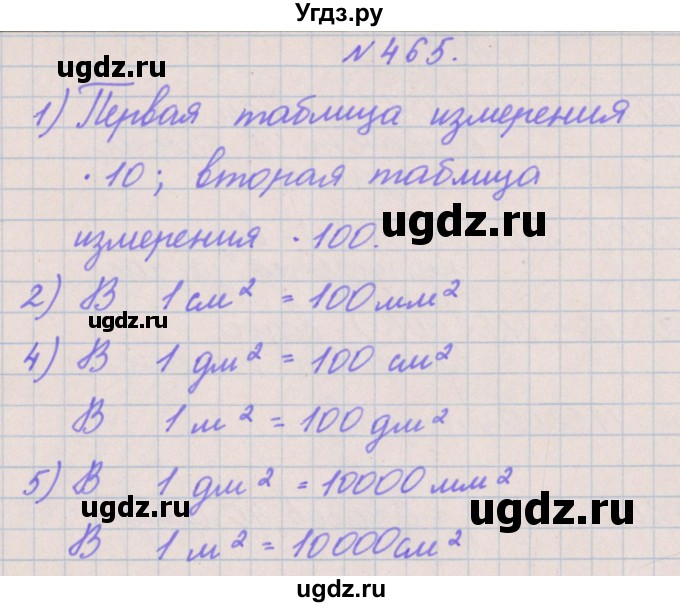 Угдз.ру
№465.
ugdz.ru
1) Первая таблица измерения
· 10; вторая таблица
ugdz.ru
измерения · 100.
2) В 1 см² = 100 мм²
ugdz.ru
4) В 1 дм² = 100 см²
В 1 м² = 100 дм²
5) В 1 дм² = 10000 мм²
ugdz.ru
ugdz.ru
В 1 м² = 10000 см²
ugdz.ru